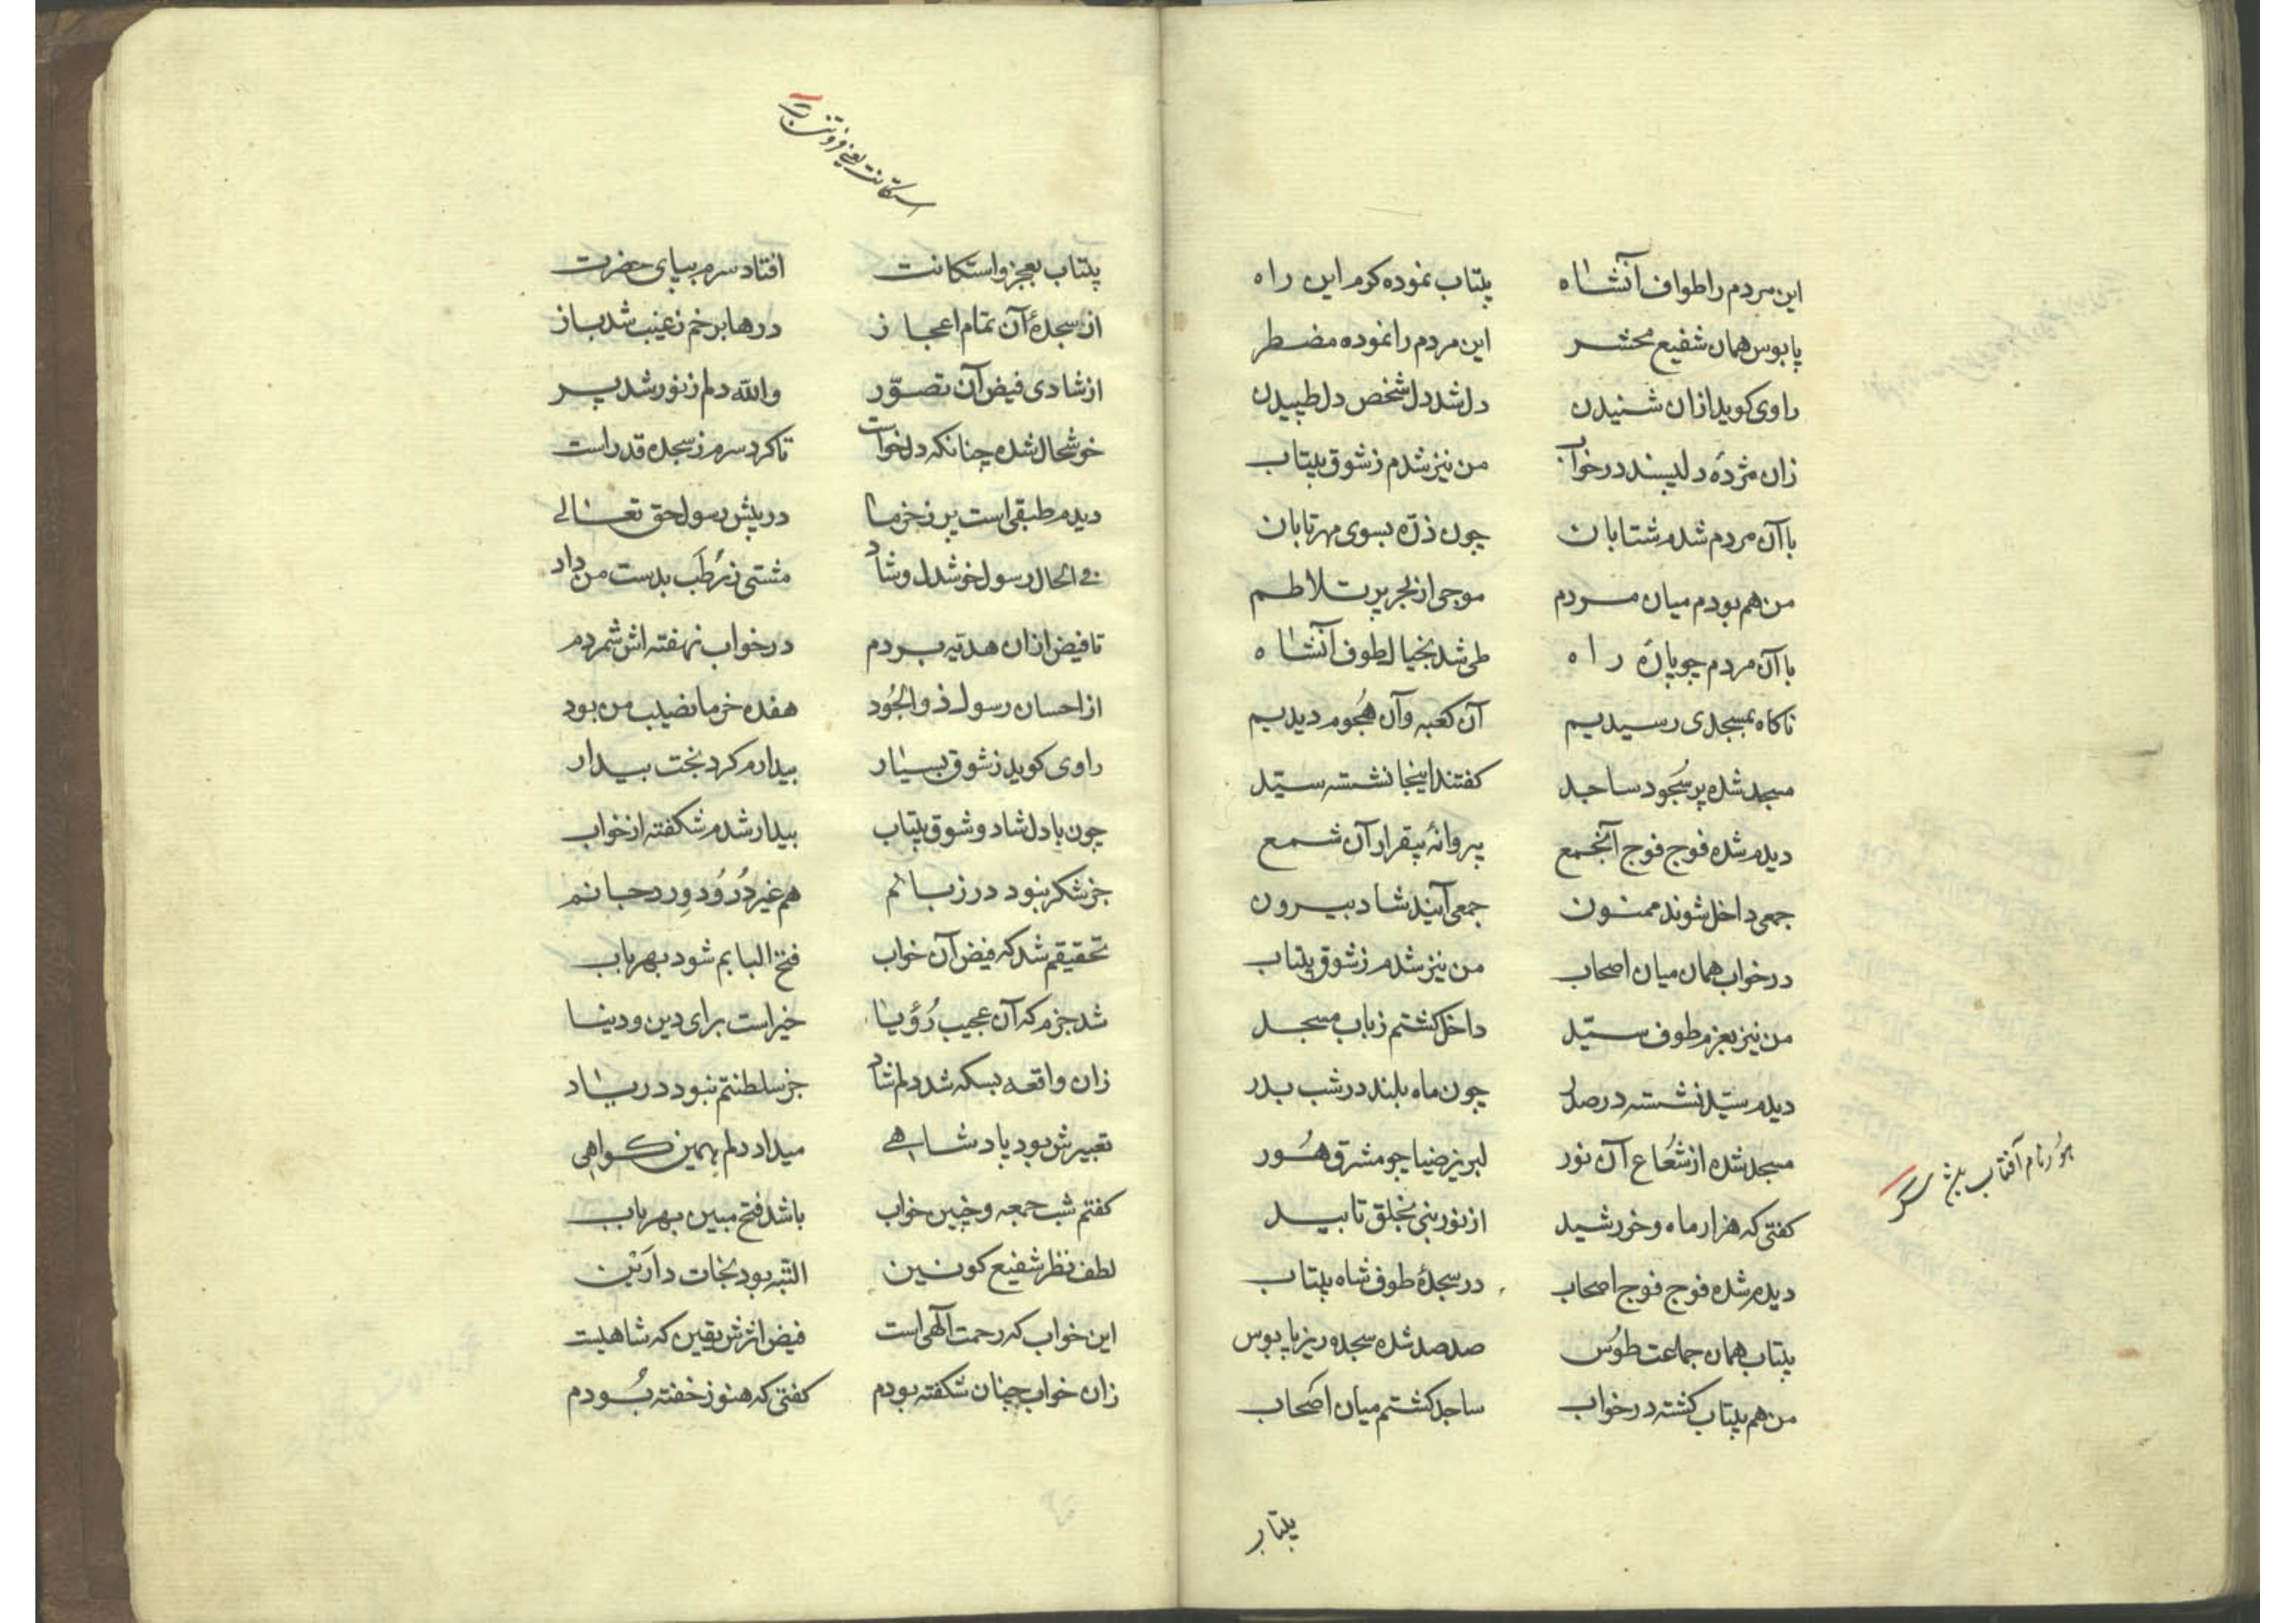 این مردم را طواف آنشاه بیتاب نموده کوم این راه
پابوس همان شفیع محشر این مردم را نموده مضطر
راوی کوید ازان شنیدن دل شد دل شخص دل طپیدن
زان مژدهٔ دلپسند در خواب من نیز شدم ز شوق بیتاب
با آن مردم شدم شتابان چون ذرّه بسوی مهر تابان
من هم بودم میان مردم موجی از بحر پر تلاطم
با آن مردم چو پارهٔ راه طی شد بخیال طوف آنشاه
ناکاه بمسجدی رسیدیم آن کعبه و آن هُجوم دیدیم
مسجد شده پر سُجود ساجد کفتند اینجا نشسته سیّد
دیدم شده فوج فوج آنجمع پروانهٔ بیقرار آن شمع
جمعی داخل شوند ممنون جمعی آیند شاد بیرون
در خواب همان میان اصحاب من نیز شدم ز شوق بیتاب
من نیز بعزم طوف سیّد داخل کشتم ز باب مسجد
دیدم سیّد نشسته در صدر چون ماه بلند در شب بدر
مسجد شده از شُعاع آن نور لبریز ضیا چو مشرق هُور
هُور نام آفتاب
کفتی که هزار ماه و خورشید از نور نبی بخلق تابید
دیدم شده فوج فوج اصحاب در سجدهٔ طوف شاه بیتاب
بیتاب همان جماعت طوس صد صد شده سجده ریز پابوس
من هم بیتاب کشته در خواب ساجد کشتم میان اصحاب
بیتاب
استکانت یعنی فروتنی
بیتاب بعجز و استکانت افتاد سرم بپای حضرت
از سجدهٔ آن تمام اعجاز درها برخم ز غیب شد باز
از شادی فیض آن تصوّر والله دلم ز نور شد پر
خوشحال شده چنانکه دلخواست تا کرد سرم ز سجده قد راست
دیدم طبقی است پر ز خرما در پیش رسول حق تعالی
فی الحال رسول خوشدل و شاد مشتی ز رُطَب بدست من داد
تا فیض ازان هدیّه بردم در خواب نهفته اش شمردم
از احسان رسول ذو الجُود هفده خرما نصیب من بود
راوی کوید ز شوق بسیار بیدارم کرد بخت بیدار
چون با دل شاد و شوق بیتاب بیدار شدم شکفته از خواب
جز شکر نبود در زبانم هم غیر دُرُود وِرد جانم
تحقیقم شد که فیض آن خواب فتح البابم شود بهر باب
شد جزم که آن عجیب رُؤیا خیر است برای دین و دنیا
زان واقعه بسکه شد دلم شاد جز سلطنتم نبود در یاد
تعبیرش بود پادشاهی میداد دلم بهمین کواهی
کفتم شب جمعه و چنین خواب باشد فتح مبین بهر باب
لطف نظر شفیع کونین البتّه بود نجات دارَیْن
این خواب که رحمت آلهی است فیض اثرش یقین که شاهیست
زان خواب چنان شکفته بودم کفتی که هنوز خفته بُودم